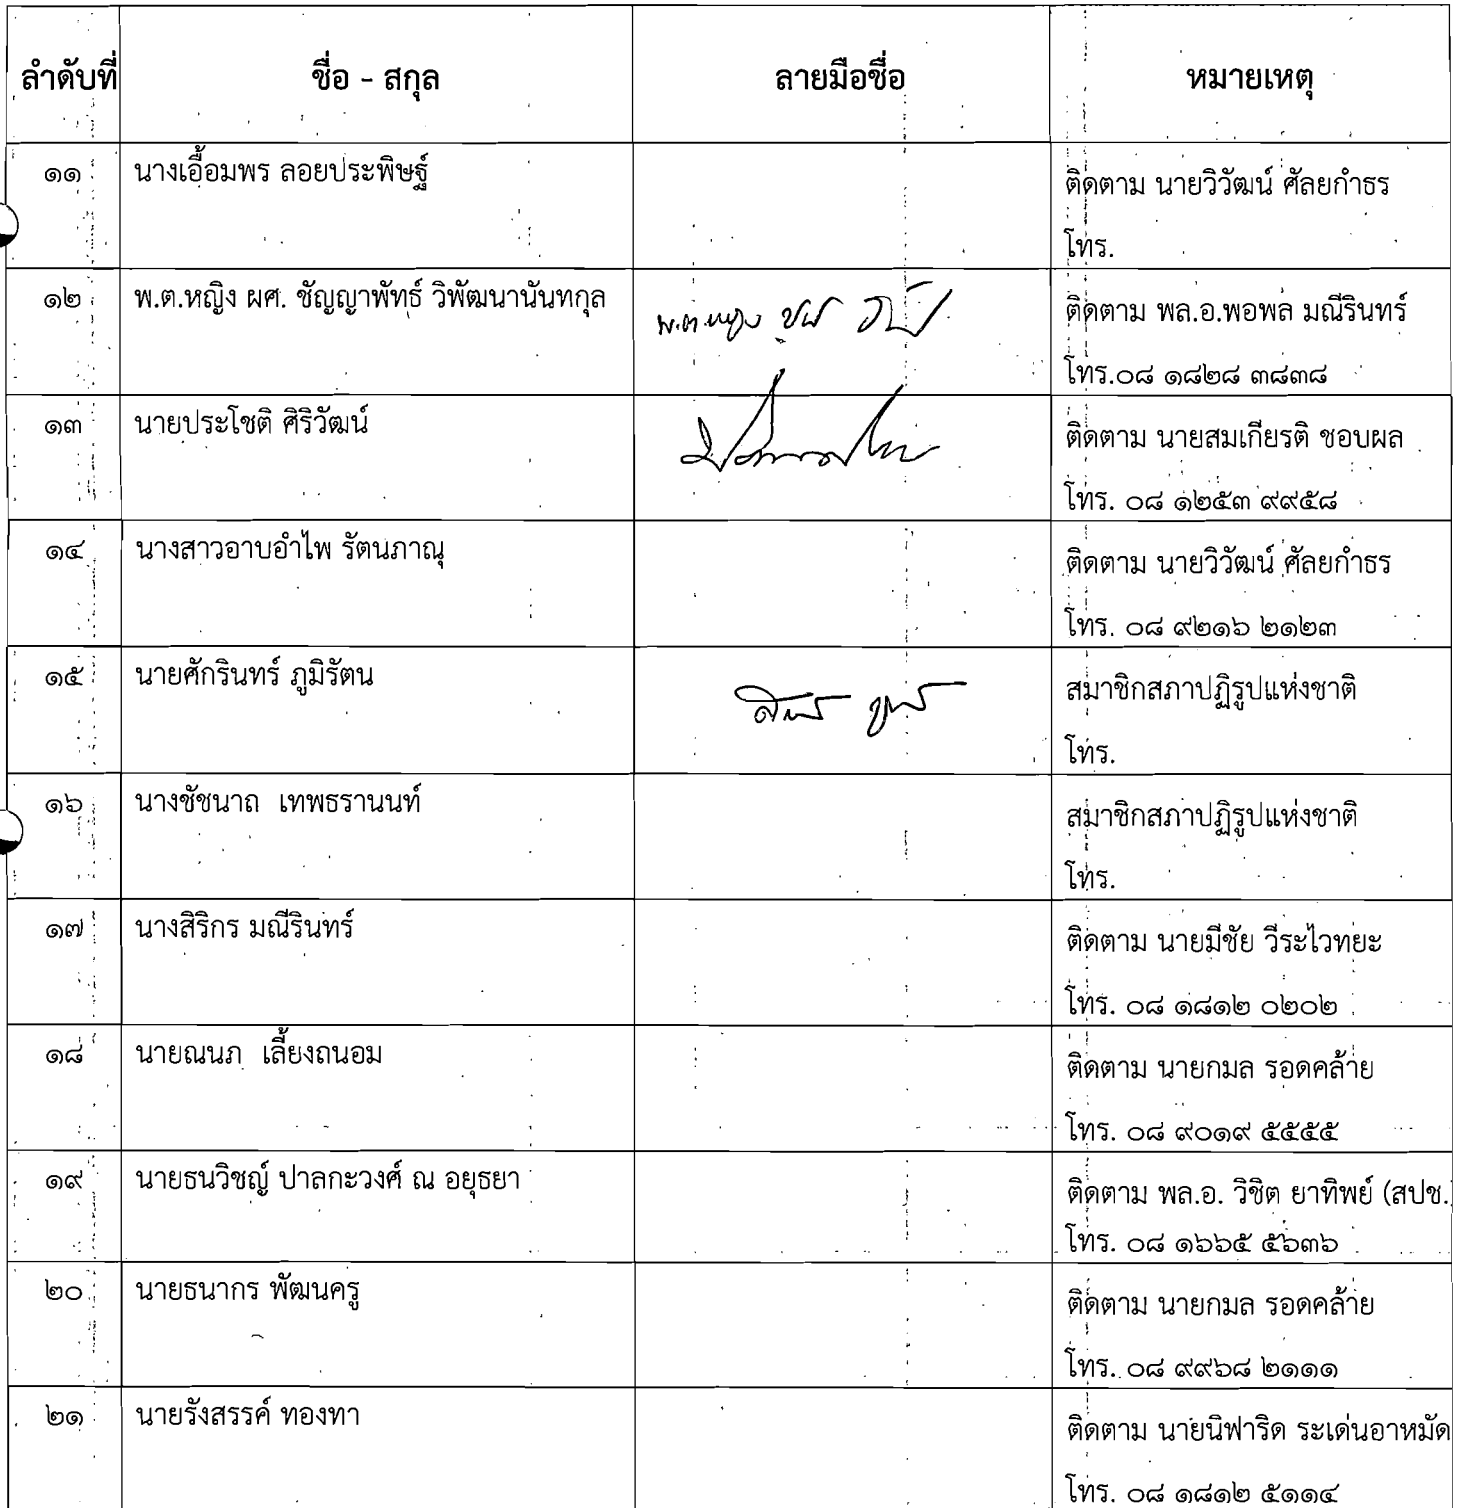 ลำดับที่ ชื่อ - สกุล ลายมือชื่อ หมายเหตุ
๑๑ นางเอื้อมพร ลอยประพิษฐ์ ติดตาม นายวิวัฒน์ ศัลยกำธร
โทร.
๑๒ พ.ต.หญิง ผศ. ชัญญาพัทธ์ วิพัฒนานันทกุล พ.ต.หญิง ติดตาม พล.อ.พอพล มณีรินทร์
โทร.๐๘ ๑๘๒๘ ๓๘๓๘
๑๓ นายประโชติ ศิริวัฒน์ ติดตาม นายสมเกียรติ ชอบผล
โทร. ๐๘ ๑๒๕๓ ๙๙๕๘
๑๔ นางสาวอาบอำไพ รัตนภาณุ ติดตาม นายวิวัฒน์ ศัลยกำธร
โทร. ๐๘ ๙๒๑๖ ๒๑๒๓
๑๕ นายศักรินทร์ ภูมิรัตน สมาชิกสภาปฏิรูปแห่งชาติ
โทร.
๑๖ นางชัชนาถ เทพธรานนท์ สมาชิกสภาปฏิรูปแห่งชาติ
โทร.
๑๗ นางสิริกร มณีรินทร์ ติดตาม นายมีชัย วีระไวทยะ
โทร. ๐๘ ๑๘๑๒ ๐๒๐๒
๑๘ นายณนภ เลี้ยงถนอม ติดตาม นายกมล รอดคล้าย
โทร. ๐๘ ๙๐๑๙ ๕๕๕๕
๑๙ นายธนวิชญ์ ปาลกะวงศ์ ณ อยุธยา ติดตาม พล.อ. วิชิต ยาทิพย์ (สปช.)
โทร. ๐๘ ๑๖๖๕ ๕๖๓๖
๒๐ นายธนากร พัฒนครู ติดตาม นายกมล รอดคล้าย
โทร. ๐๘ ๙๙๖๘ ๒๑๑๑
๒๑ นายรังสรรค์ ทองทา ติดตาม นายนิฟาริด ระเด่นอาหมัด
โทร. ๐๘ ๑๘๑๒ ๕๑๑๔